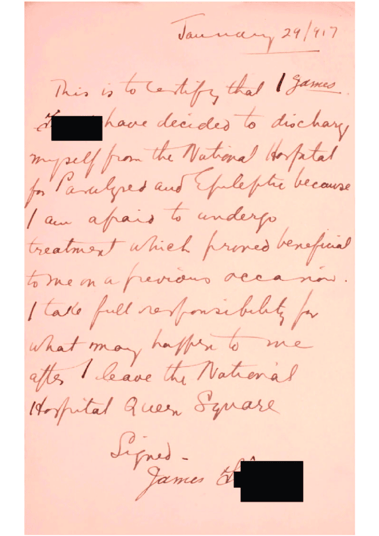 January 29/917
This is to certify that I James
have decided to discharg
myself from the National Hospital
for Paralysed and Epileptic because
I am afraid to undergo
treatment which proved beneficial
to me on a previous occasion.
I take full responsibility for
what may happen to me
after I leave the National
Hospital Queen Square
Signed -
James